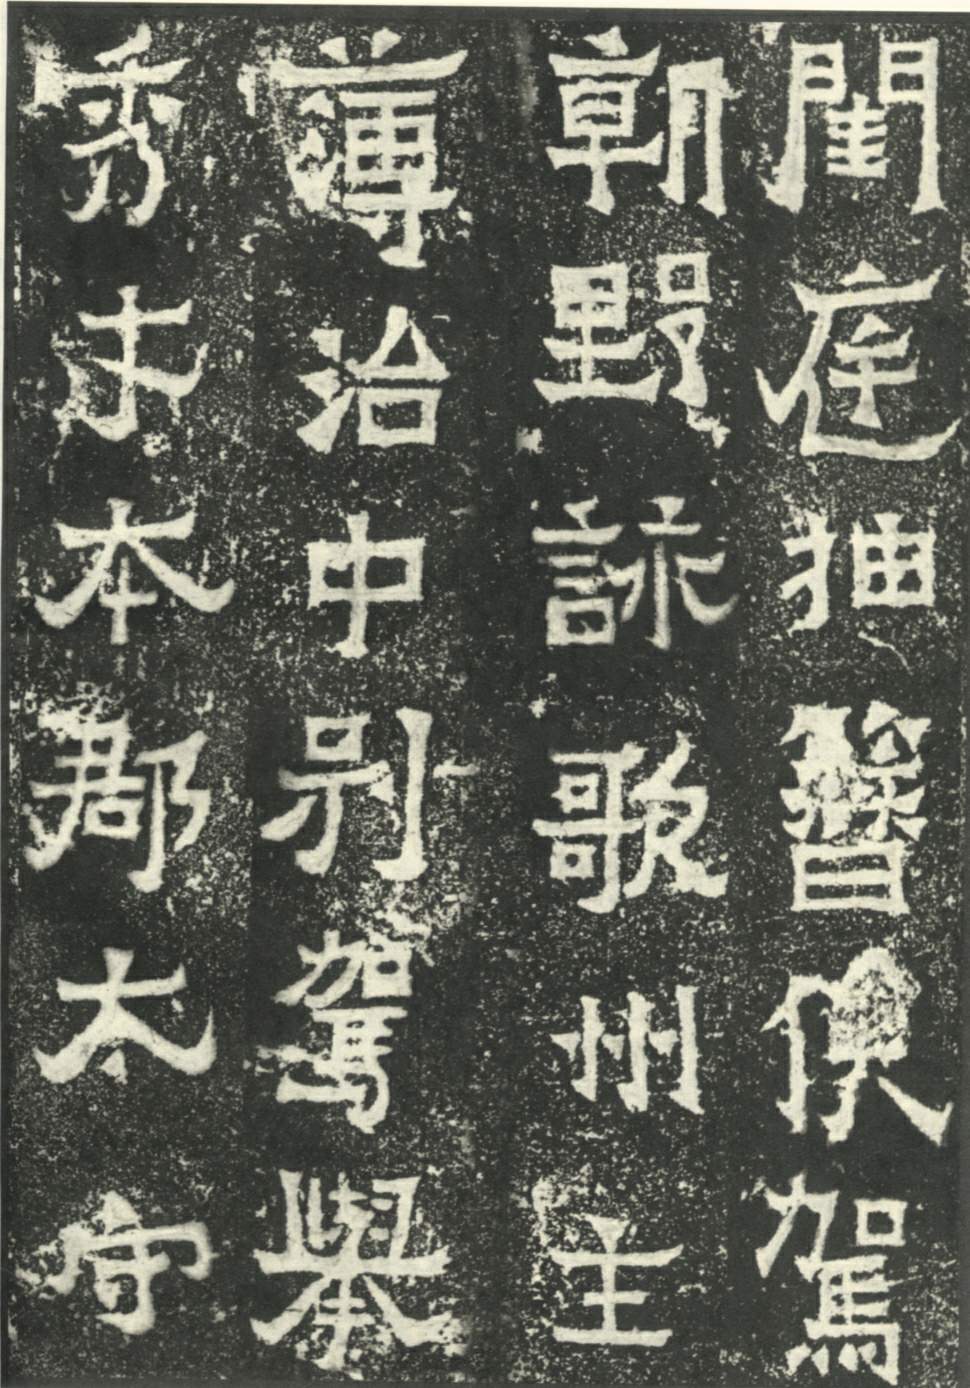 閨庭抽簪俟駕
朝野詠歌州主
簿治中別駕舉
秀才本郡太守